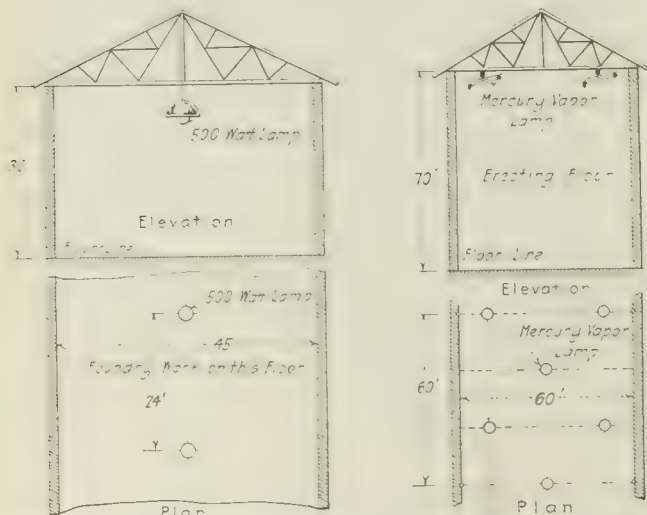 500 Watt Lamp
Elevation
500 Watt Lamp
45
Foundry Work on this Floor
24'
Plan
Mercury Vapor
Lamp
70'
Erecting Floor
Floor Line
Elevation
Mercury Vapor
Lamp
60'
60'
Plan